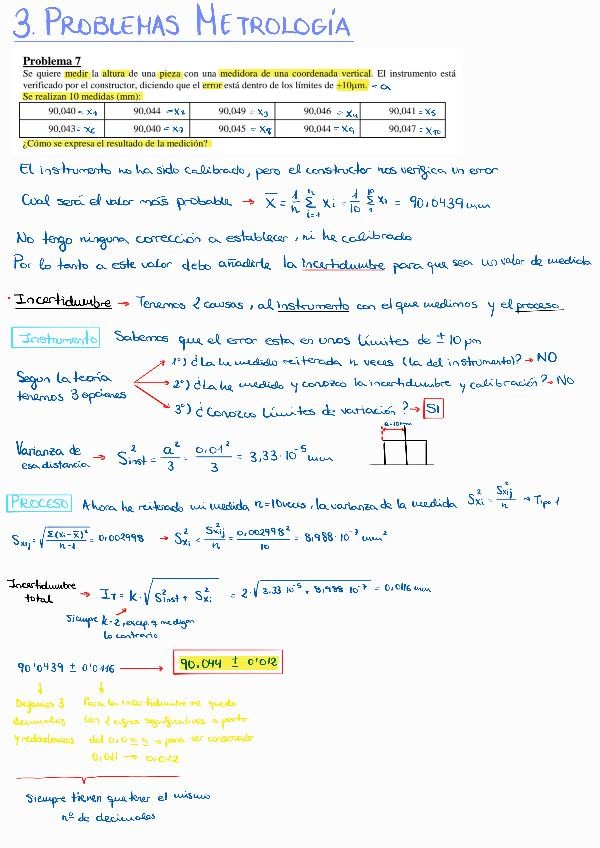 3. PROBLEMAS METROLOGÍA
Problema 7
Se quiere medir la altura de una pieza con una medidora de una coordenada vertical. El instrumento está
verificado por el constructor, diciendo que el error está dentro de los límites de ±10µm. = a
Se realizan 10 medidas (mm):
90,040 = x1 90,044 = x2 90,049 = x3 90,046 = x4 90,041 = x5
90,043 = x6 90,040 = x7 90,045 = x8 90,044 = x9 90,047 = x10
¿Cómo se expresa el resultado de la medición?
El instrumento no ha sido calibrado, pero el constructor nos verifica un error
Cual será el valor más probable → X̄ = 1/n Σ(i=1, n) xi = 1/10 Σ(1, 10) xi = 90,0439 mm
No tengo ninguna corrección a establecer, ni he calibrado
Por lo tanto a este valor debo añadirle la incertidumbre para que sea un valor de medida
· Incertidumbre → Tenemos 2 causas, al instrumento con el que medimos y el proceso
Instrumento Sabemos que el error esta en unos límites de ± 10 µm
1º) ¿La hu medido reiterada n veces (la del instrumento)? → NO
Segun la teoría
tenemos 3 opciones
2º) ¿La he medido y conozco la incertidumbre y calibración? → NO
3º) ¿Conozco límites de variación? → SI
a=10µm
Varianza de
esa distancia → S²inst = a²/3 = 0,01²/3 = 3,33·10⁻⁵ mm
PROCESO Ahora he reiterado mi medida n=10 veces, la varianza de la medida S²xi = S²xij/n → Tipo 1
Sxij = √(Σ(xi-x̄)²/n-1) = 0,002998 → S²xi = S²xij/n = 0,002998²/10 = 8,988·10⁻⁷ mm²
Incertidumbre
total → IT = K·√(S²inst + S²xi) = 2·√(3.33·10⁻⁵ + 8,988·10⁻⁷) = 0,0116 mm
Siempre K=2, excep. q me digan
lo contrario
90'0439 ± 0'0116 → 90.044 ± 0'012
Dejamos 3
decimales
y redondeamos
Para la incertidumbre me quedo
con 2 cifras significativas a partir
del 0,0xx → para ser conservador
0,011 → 0,012
Siempre tienen que tener el mismo
nº de decimales